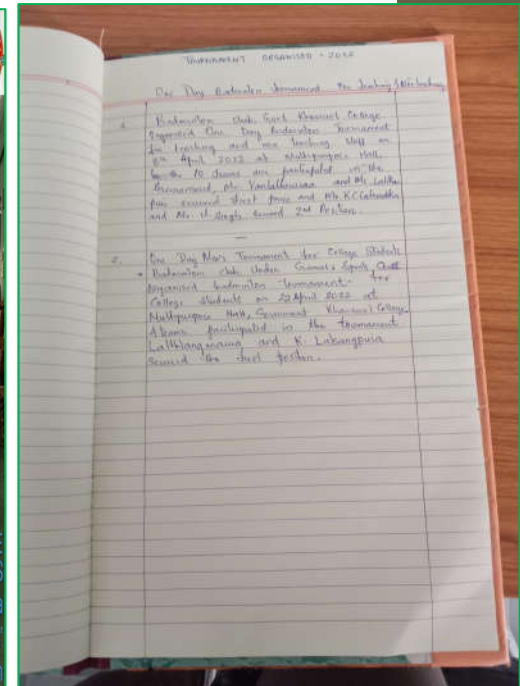 TOURNAMENT ORGANISED - 2022
One Day Badminton Tournament for Teaching & Non teaching
1. Badminton club, Govt Khawzawl College
Organised One Day Badminton Tournament
for teaching and non teaching staff on
6th April 2022 at Multipurpose Hall,
10 teams are participated in the
Tournament, Mr. and Mr.
secured first prize and Mr. K.C.
and Mr. Singh secured 2nd Position.
2. One Day Men's Tournament for College Students
Badminton club Under Games & Sports,
Organised badminton tournament for
College students on 22 April 2022 at
Multipurpose Hall, Government Khawzawl College.
4 teams participated in the tournament
and K. Labangpuia
secured the first position.